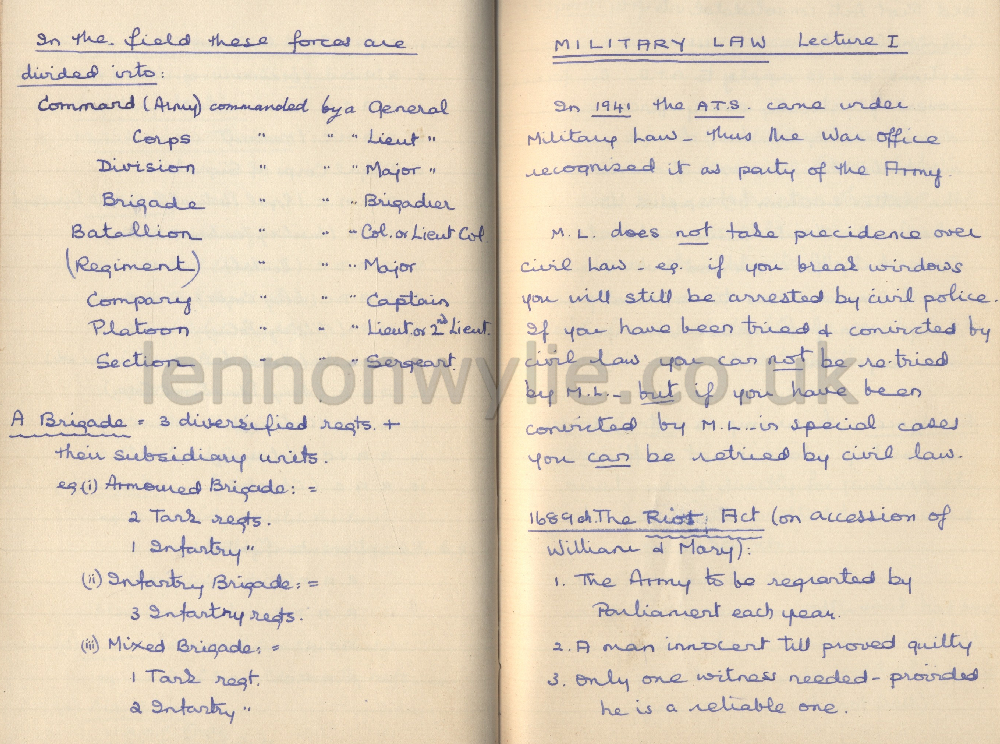 In the field these forces are
divided into:
Command (Army) commanded by a General
Corps " " " Lieut "
Division " " " Major "
Brigade " " " Brigadier
Batallion " " " Col. or Lieut Col.
(Regiment) " " " Major
Company " " " Captain
Platoon " " " Lieut. or 2nd Lieut.
Section " " " Sergeant.
A Brigade = 3 diversified regts. +
their subsidiary units.
eg. (i) Armoured Brigade: =
2 Tank regts.
1 Infantry "
(ii) Infantry Brigade: =
3 Infantry regts.
(iii) Mixed Brigade: =
1 Tank regt.
2 Infantry "
MILITARY LAW Lecture I
In 1941 the A.T.S. came under
Military Law - thus the War Office
recognised it as party of the Army.
M.L. does not take precidence over
civil law - eg. if you break windows
you will still be arrested by civil police.
If you have been tried & convicted by
civil law you can not be re-tried
by M.L. - but if you have been
convicted by M.L. - in special cases
you can be retried by civil law.
1689 The Riot Act (on accession of
William & Mary):
1. The Army to be regranted by
Parliament each year.
2. A man innocent till proved guilty
3. Only one witness needed - provided
he is a reliable one.
lennonwylie.co.uk